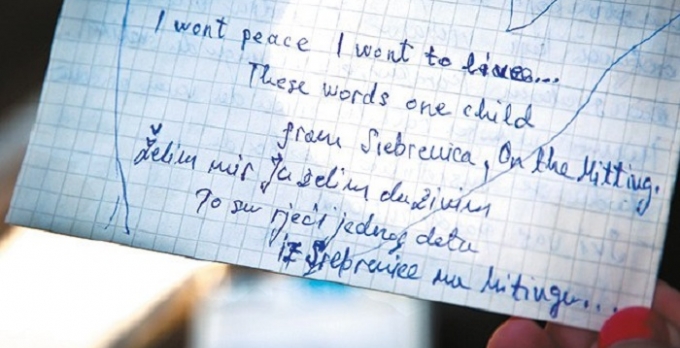 I wont peace I wont to lives...
These words one child
from Srebrenica, On the Mitting.
Želim mir Ja želim da živim
To su rječi jednog deta
iz Srebrenice na Mitingu...